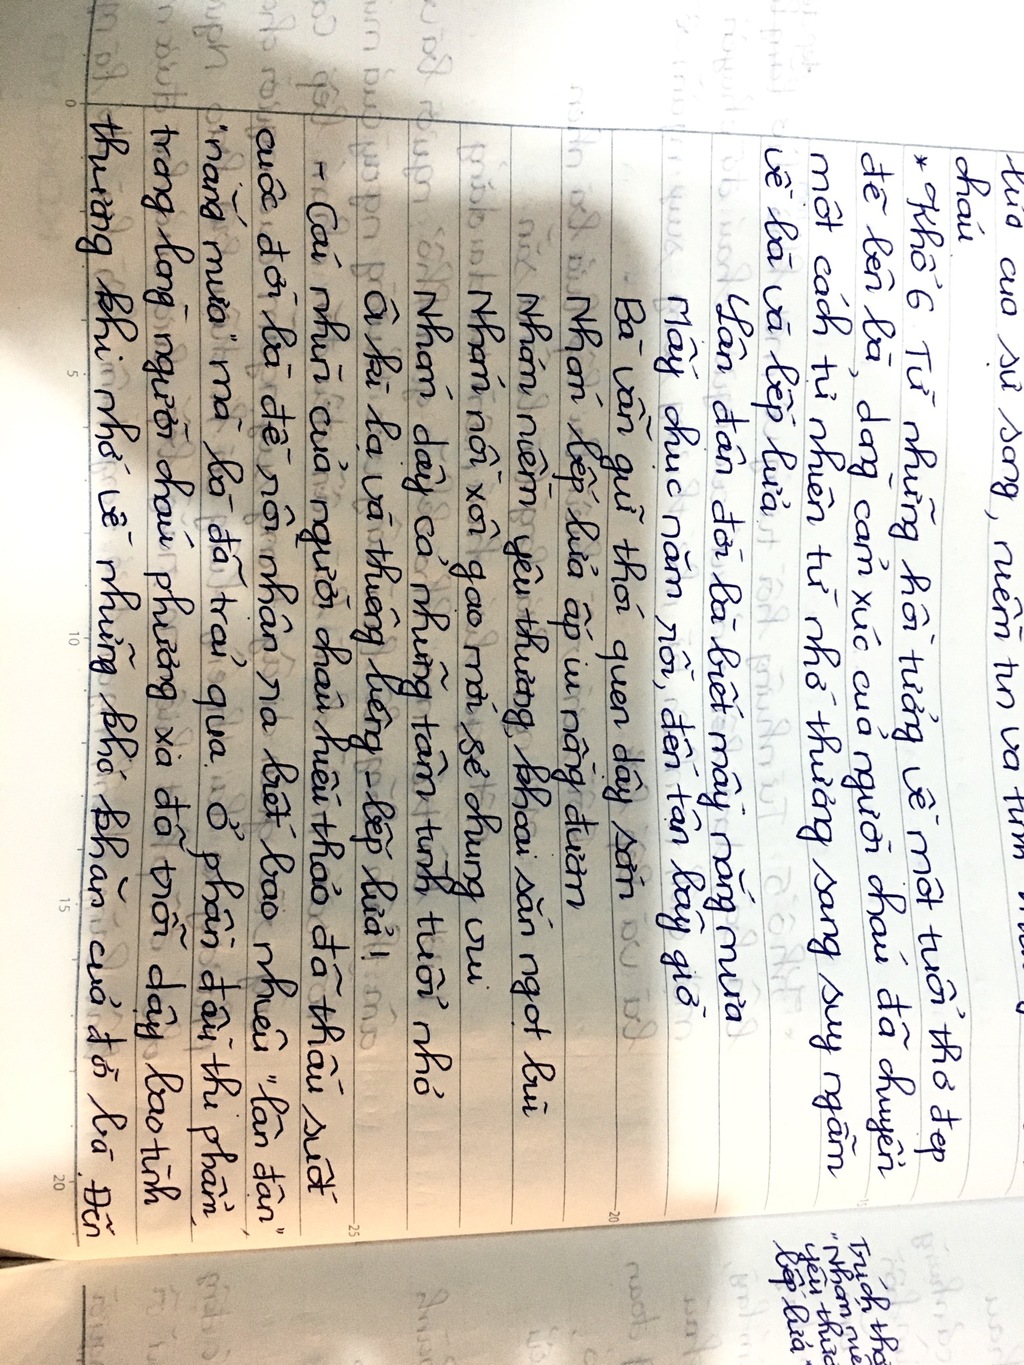 của sự sống, niềm tin và tình
cháu
* Khổ 6 Từ những hồi tưởng về một tuổi thơ đẹp
đẽ bên bà, dòng cảm xúc của người cháu đã chuyển
một cách tự nhiên từ nhớ thương sang suy ngẫm
về bà và bếp lửa
Lận đận đời bà biết mấy nắng mưa
Mấy chục năm rồi, đến tận bây giờ
Bà vẫn giữ thói quen dậy sớm
Nhóm bếp lửa ấp iu nồng đượm
Nhóm niềm yêu thương, khoai sắn ngọt bùi
Nhóm nồi xôi gạo mới, sẻ chung vui
Nhóm dậy cả những tâm tình tuổi nhỏ
Ôi kì lạ và thiêng liêng - bếp lửa!
- Cái nhìn của người cháu hiếu thảo đã thấu suốt
cuộc đời bà để rồi nhận ra biết bao nhiêu "lận đận",
"nắng mưa" mà bà đã trải qua. Ở phần đầu thi phẩm,
trong lòng người cháu phương xa đã trỗi dậy bao tình
thương khi nhớ về những khó khăn của đời bà. Đến
Trích thơ
"Nhóm niề
yêu thươ
bếp lửa"